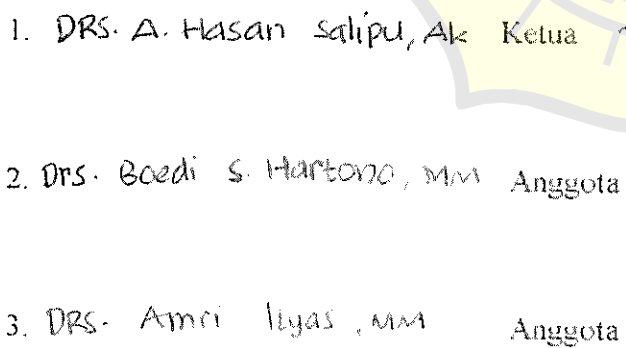 1. DRS. A. Hasan Salipu, Ak Ketua
2. Drs. Boedi S. Hartono, MM Anggota
3. DRS. Amri Ilyas, MM Anggota